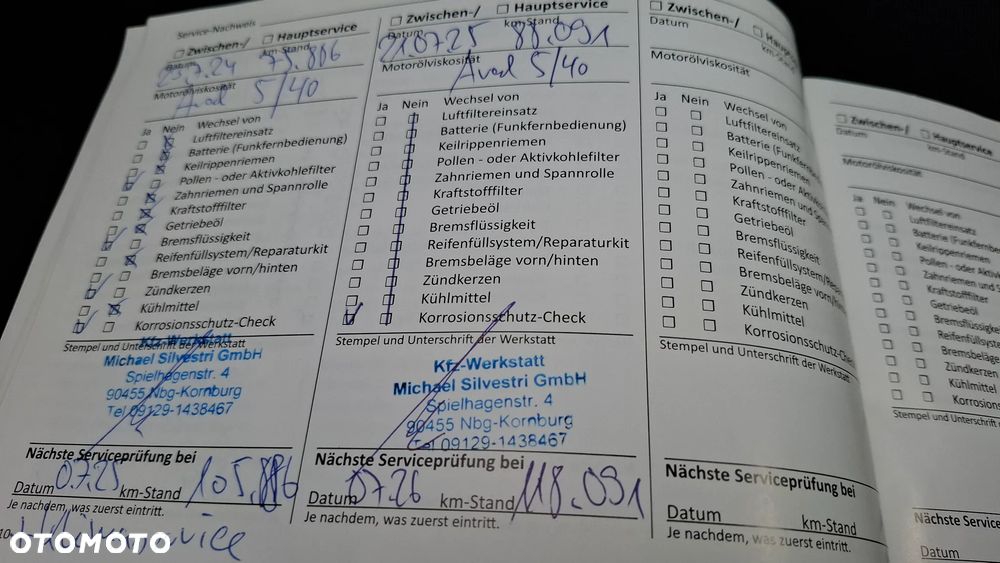 Service-Nachweis
☐ Zwischen-/ ☐ Hauptservice
Datum km-Stand
23.7.24 75.886
Motorölviskosität
5/40
Ja Nein Wechsel von
Luftfiltereinsatz
Batterie (Funkfernbedienung)
Keilrippenriemen
Pollen - oder Aktivkohlefilter
Zahnriemen und Spannrolle
Kraftstofffilter
Getriebeöl
Bremsflüssigkeit
Reifenfüllsystem/Reparaturkit
Bremsbeläge vorn/hinten
Zündkerzen
Kühlmittel
Korrosionsschutz-Check
Stempel und Unterschrift der Werkstatt
Kfz-Werkstatt
Michael Silvestri GmbH
Spielhagenstr. 4
90455 Nbg-Kornburg
Tel 09129-1438467
Nächste Serviceprüfung bei
Datum 07.25 km-Stand 105.886
Je nachdem, was zuerst eintritt.
☐ Zwischen-/ ☐ Hauptservice
Datum km-Stand
21.07.25 88.091
Motorölviskosität
5/40
Ja Nein Wechsel von
Luftfiltereinsatz
Batterie (Funkfernbedienung)
Keilrippenriemen
Pollen - oder Aktivkohlefilter
Zahnriemen und Spannrolle
Kraftstofffilter
Getriebeöl
Bremsflüssigkeit
Reifenfüllsystem/Reparaturkit
Bremsbeläge vorn/hinten
Zündkerzen
Kühlmittel
Korrosionsschutz-Check
Stempel und Unterschrift der Werkstatt
Kfz-Werkstatt
Michael Silvestri GmbH
Spielhagenstr. 4
90455 Nbg-Kornburg
Tel 09129-1438467
Nächste Serviceprüfung bei
Datum 07.26 km-Stand 118.091
Je nachdem, was zuerst eintritt.
☐ Zwischen-/ ☐ Hauptservice
Datum km-Stand
Motorölviskosität
Ja Nein Wechsel von
Luftfiltereinsatz
Batterie (Funkfernbed
Keilrippenriemen
Pollen - oder Aktivko
Zahnriemen und Spa
Kraftstofffilter
Getriebeöl
Bremsflüssigkeit
Reifenfüllsystem/Repara
Bremsbeläge vorn/hint
Zündkerzen
Kühlmittel
Korrosionsschutz-Che
Stempel und Unterschrift der Werkstatt
Nächste Serviceprüfung bei
Datum km-Stand
Je nachdem, was zuerst eintritt.
☐ Zwischen-/ ☐ Hauptservice
Datum km-Stand
Motorölviskosität
Ja Nein Wechsel von
Luftfiltereinsatz
Batterie (Funkfernb
Keilrippenriemen
Pollen - oder Akti
Zahnriemen und S
Kraftstofffilter
Getriebeöl
Bremsflüssigkeit
Reifenfüllsystem
Bremsbeläge
Zündkerzen
Kühlmittel
Korrosions
Stempel und Unterschrift
Nächste Service
Datum
Je nachdem, was
OTOMOTO